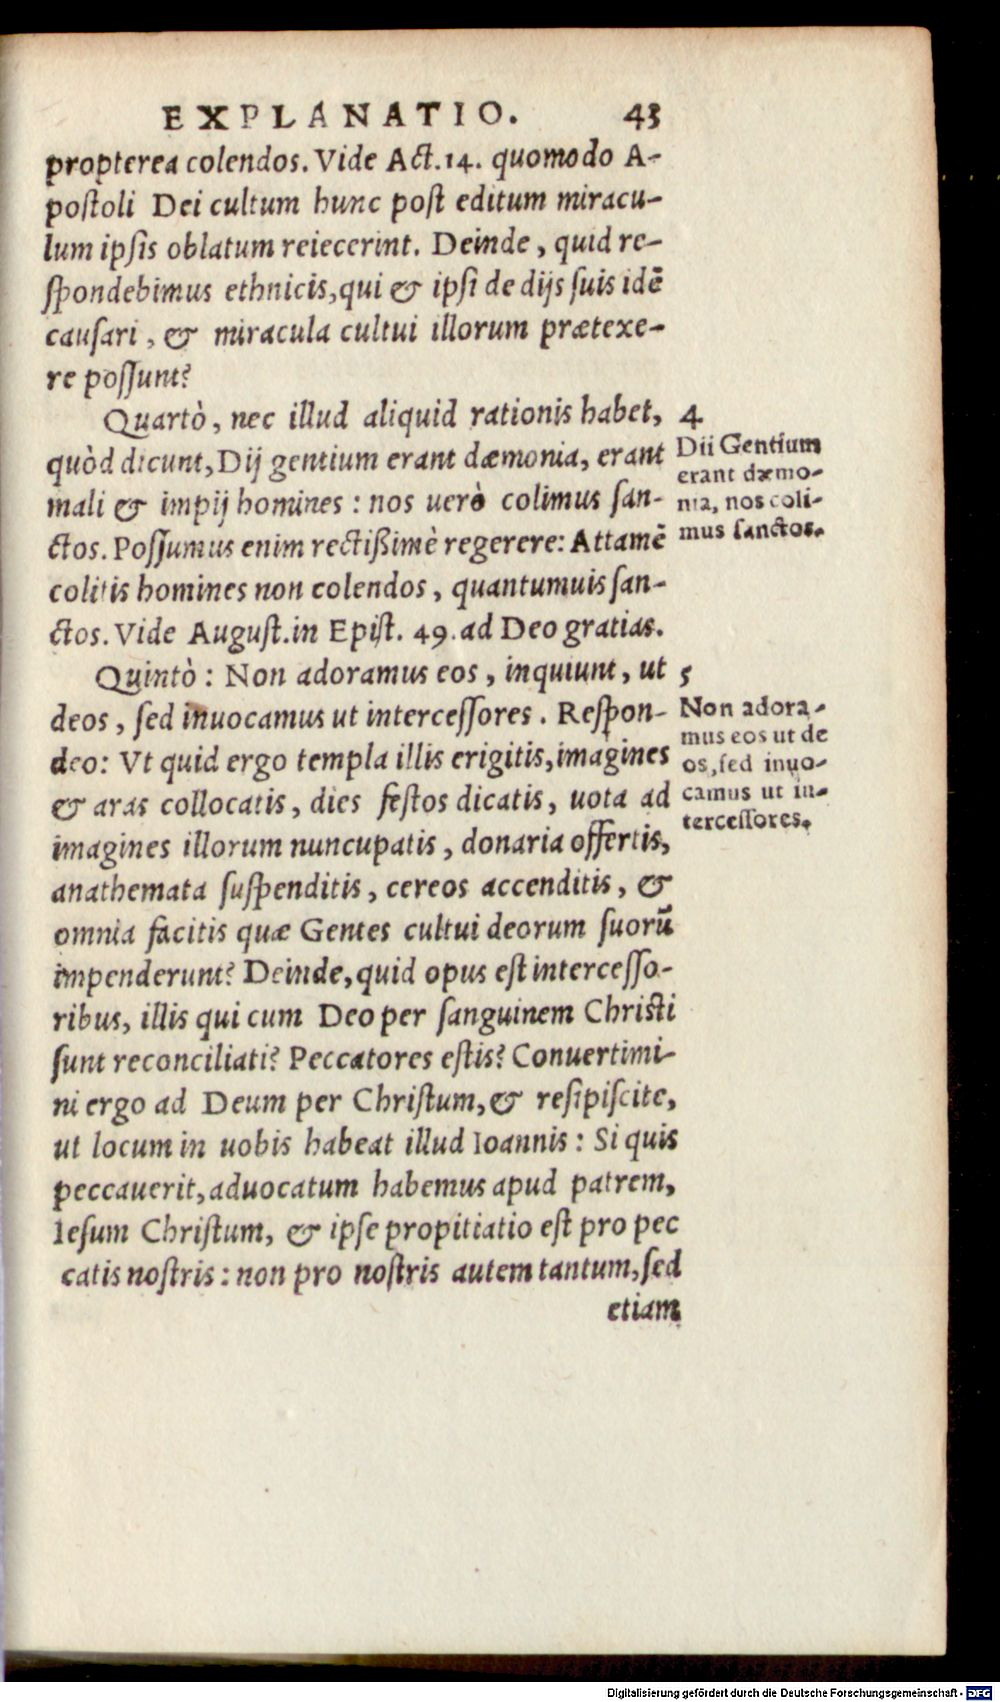 EXPLANATIO. 43
propterea colendos. Vide Act. 14. quomodo A-
poſtoli Dei cultum hunc poſt editum miracu-
lum ipſis oblatum reiecerint. Deinde, quid re-
ſpondebimus ethnicis, qui & ipſi de dijs ſuis idē
cauſari, & miracula cultui illorum prætexe-
re poſſunt?
Quartò, nec illud aliquid rationis habet,
quòd dicunt, Dij gentium erant dæmonia, erant
mali & impij homines: nos uerò colimus ſan-
ctos. Poſſumus enim rectißimè regerere: Attamē
colitis homines non colendos, quantumuis ſan-
ctos. Vide Auguſt. in Epiſt. 49. ad Deo gratias.
4
Dii Gentium
erant dæmo-
nia, nos coli-
mus ſanctos.
Quintò: Non adoramus eos, inquiunt, ut
deos, ſed inuocamus ut interceſſores. Reſpon-
deo: Vt quid ergo templa illis erigitis, imagines
& aras collocatis, dies feſtos dicatis, uota ad
imagines illorum nuncupatis, donaria offertis,
anathemata ſuſpenditis, cereos accenditis, &
omnia facitis quæ Gentes cultui deorum ſuorū
impenderunt? Deinde, quid opus eſt interceſſo-
ribus, illis qui cum Deo per ſanguinem Chriſti
ſunt reconciliati? Peccatores eſtis? Conuertimi-
ni ergo ad Deum per Chriſtum, & reſipiſcite,
ut locum in uobis habeat illud Ioannis: Si quis
peccauerit, aduocatum habemus apud patrem,
Ieſum Chriſtum, & ipſe propitiatio eſt pro pec
catis noſtris: non pro noſtris autem tantum, ſed
etiam
5
Non adora-
mus eos ut de
os, ſed inuo-
camus ut in-
terceſſores.
Digitalisierung gefördert durch die Deutsche Forschungsgemeinschaft - DFG